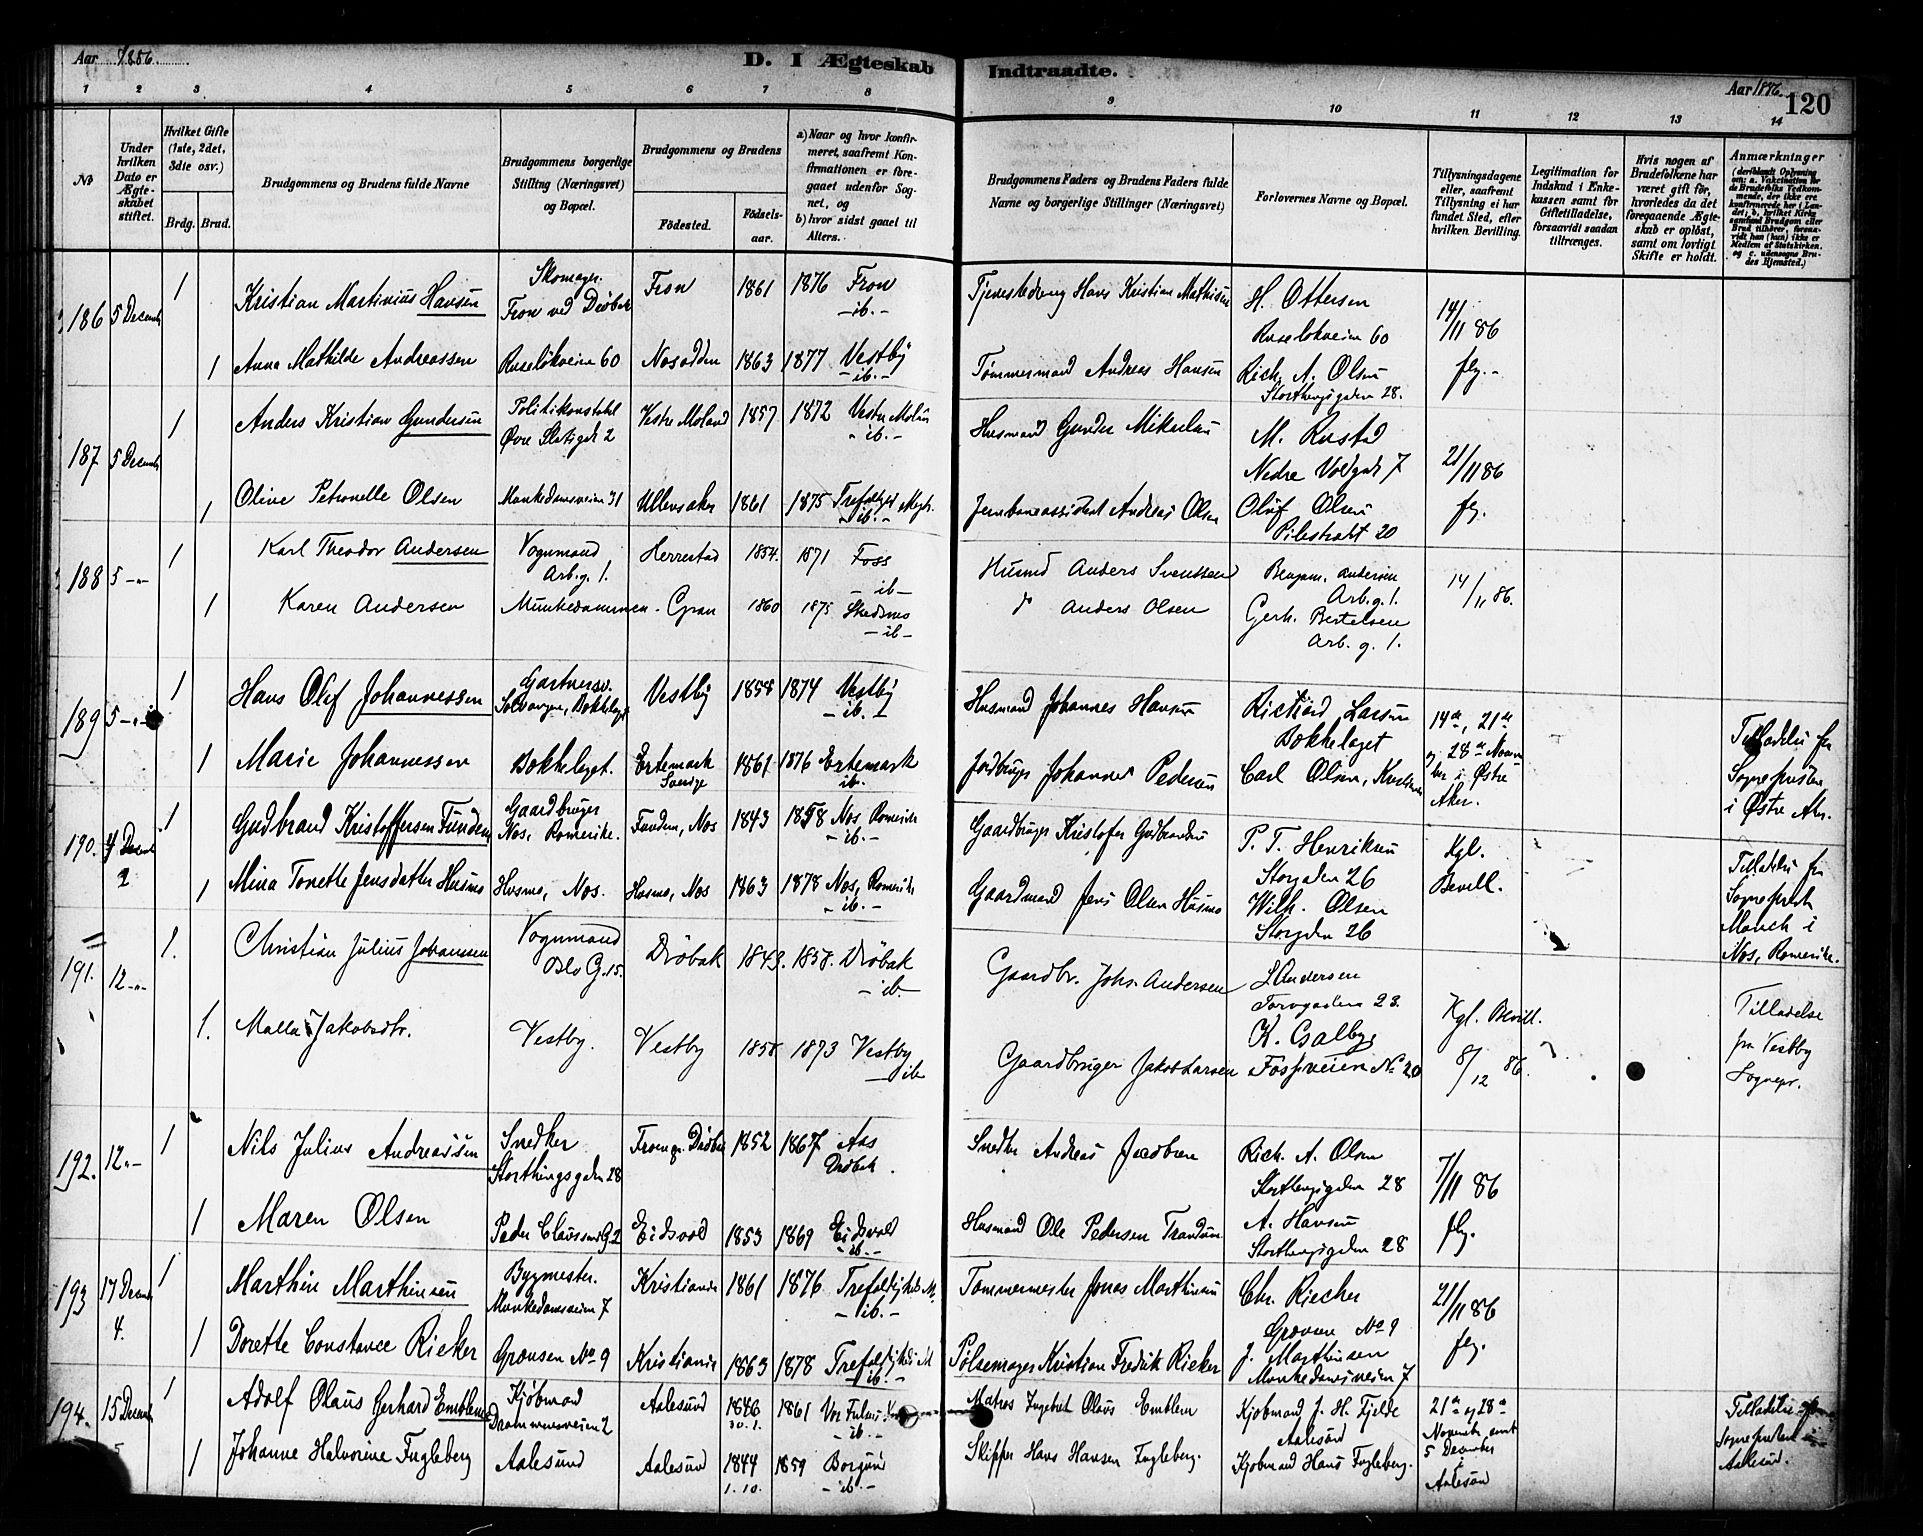 Aar 1886.
D. I Ægteskab Indtraadte.
Aar 1886.
120
1 2 3 4 5 6 7 8 9 10 11 12 13 14
No
Under hvilken Dato er Ægteskabet stiftet.
Hvilket Gifte (1ste, 2det, 3die osv.)
Brdg. Brud.
Brudgommens og Brudens fulde Navne
Brudgommens borgerlige Stilling (Næringsvei) og Bopæl.
Brudgommens og Brudens
Fødested.
Fødselsaar.
a) Naar og hvor konfirmeret, saafremt Konfirmationen er foregaaet udenfor Sognet, og
b) hvor sidst gaaet til Alters.
Brudgommens Faders og Brudens Faders fulde Navne og borgerlige Stillinger (Næringsvei)
Forlovernes Navne og Bopæl.
Tillysningsdagene eller, saafremt Tillysning ei har fundet Sted, efter hvilken Bevilling.
Legitimation for Indskud i Enkekassen samt for Giftetilladelse, forsaavidt saadan tiltrænges.
Hvis nogen af Brudefolkene har været gift før, hvorledes da det foregaaende Ægteskab er opløst, samt om lovligt Skifte er holdt.
Anmærkninger (deriblandt Oplysning om: a. Vakcination for de Brudefolks Vedkommende, der ikke ere konfirmerede her i Landet; b. hvilket Kirkesamfund Brudgom eller Brud tilhører, forsaavidt han (hun) ikke er Medlem af Statskirken, og c. udensogns Brudes Hjemsted.)
186 5 Decemb 1 Kristian Martinius Hansen Skomager. Fron ved Drøbak Fron 1861 1876 Fron -ib.- Hans Kristian Mathisen H. Ottersen Ruseløkveien 60 14/11 86
1 Anna Mathilde Andreassen Ruseløkveien 60 Nesodden 1863 1877 Vestby -ib.- Tømmermand Andreas Hansen Rich. A. Olsen Storthingsgaden 28. flg.-
187 5 Decemb 1 Anders Kristian Gundersen Politikonstabel Øvre Slotsgd. 2 Vestre Moland 1857 1872 Vestre Moland -ib.- Husmand Gunder Mikkelsen M. Rustad Nedre Voldgade 7 21/11 86
1 Olive Petronelle Olsen Munkedamsveien 31 Ullensaker 1861 1875 Trefoldigh. Mgh. -ib.- Jernbaneassistent Andreas Olsen Oluf Olsen Pilestrædet 20 flg.
188 5 -"- 1 Karl Theodor Andersen Vognmand Arb.g. 1. Herrestad 1854. 1871 Foss -ib- Husmd Anders Svendsen Benjam. Andersen Arb.g. 1. 14/11 86.
1 Karen Andersen Munkedammen - Gran 1860 1875 Skedsmo -ib- do Anders Olsen Gerh. Bertelsen Arb. g. 1.
189 5 -"- 1 Hans Olef Johannessen Gartnersv. Bokkelaget Vestby 1858 1874 Vestby -ib.- Husmand Johannes Hansen Richard Larsen Bekkelaget 14de, 21de
1 Marie Johannessen Bekkelaget. Ertemark Sverige 1861 1876 Ertemark ib. Jordbruger Johannes Pedersen Carl Olsen, og 28de November i Østre Aker. Tilladelse fra Sognepresten i Østre Aker.
190. Decemb 2 1 Gudbrand Kristoffersen Funden Gaardbruger Nes, Romerike. Funden, Nes 1843 1858 Nes Romerike -ib.- Gaardbruger Kristofer Gudbrandsen P. T. Henriksen Storgaden 26 Kgl. Bevill.
1 Mina Tonette Jensdatter Husmo Husmo, Nes. Husmo, Nes 1863 1878 Nes, Romerike -ib.- Gaardmand Jens Olsen Husmo Wilh. Olsen Storgaden 26 Tilladelse fra Sogneprest Munch i Nes, Romerike.
191. 12 -"- 1. Christian Julius Johansen Vognmand Oslo G. 15. Drøbak 1843. 1858. Drøbak -ib. Gaardbr. Johs. Andersen L. Andersen Torvgaden 23.
1. Malla Jakobsdtr. Vestby. Vestby 1858 1873 Vestby -ib Gaardbruger Jakob Larsen K. Galby Fossveien No 20 Kgl. Bevill. 8/12 86. Tilladelse fra Vestby Sognepr.
192. 12 "- 1 Nils Julius Andreassen Snedker Storthingsgaden 28 Fron pr. Drøbak 1852 1867 Aas Drøbak. Snedker Andreas Jacobsen Rich. A. Olsen Storthingsgaden 28 7/11 86
1 Maren Olsen Peder Claussensg. 2 Eidsvold 1853 1869 Eidsvold -ib.- Husmand Ole Pedersen Trandum A. Hansen Storthingsgaden 28 flg.
193 17 Decemb 4. 1 Marthin Marthinsen Bygmester. Munkedamsveien 7 Kristiania 1861 1876 Trefoldigheds M. -ib.- Tømmermester Jonas Marthinsen Chr. Riecker Grænsen No 9 21/11 86
1 Dorette Constance Rieker Grønsen No 9 Kristiania 1863 1878 Trefoldigheds M -ib.- Pølsemager Kristian Fredrik Rieker J. Marthinsen Munkedamsveien 7 flg.
194. 15 Decemb 1 Adolf Olaus Gerhard Emblem Kjøbmad Drammensveien 2 Aalesund 1846 30.1. 1861 Vor Frelsers K. -ib.- Matros Ingebret Olaus Emblem Kjøbmand J. H. Fjelde Aalesund 21de og 28de November samt
1 Johanne Halvorine Fugleberg Aalesund Aalesund 1844 1.10. 1859 Borgund -ib.- Skipper Hans Hansen Fugleberg. Kjøbmand Hans Fugleberg. 5 December i Aalesund Tilladelse fra Sognepresten i Aalesund.